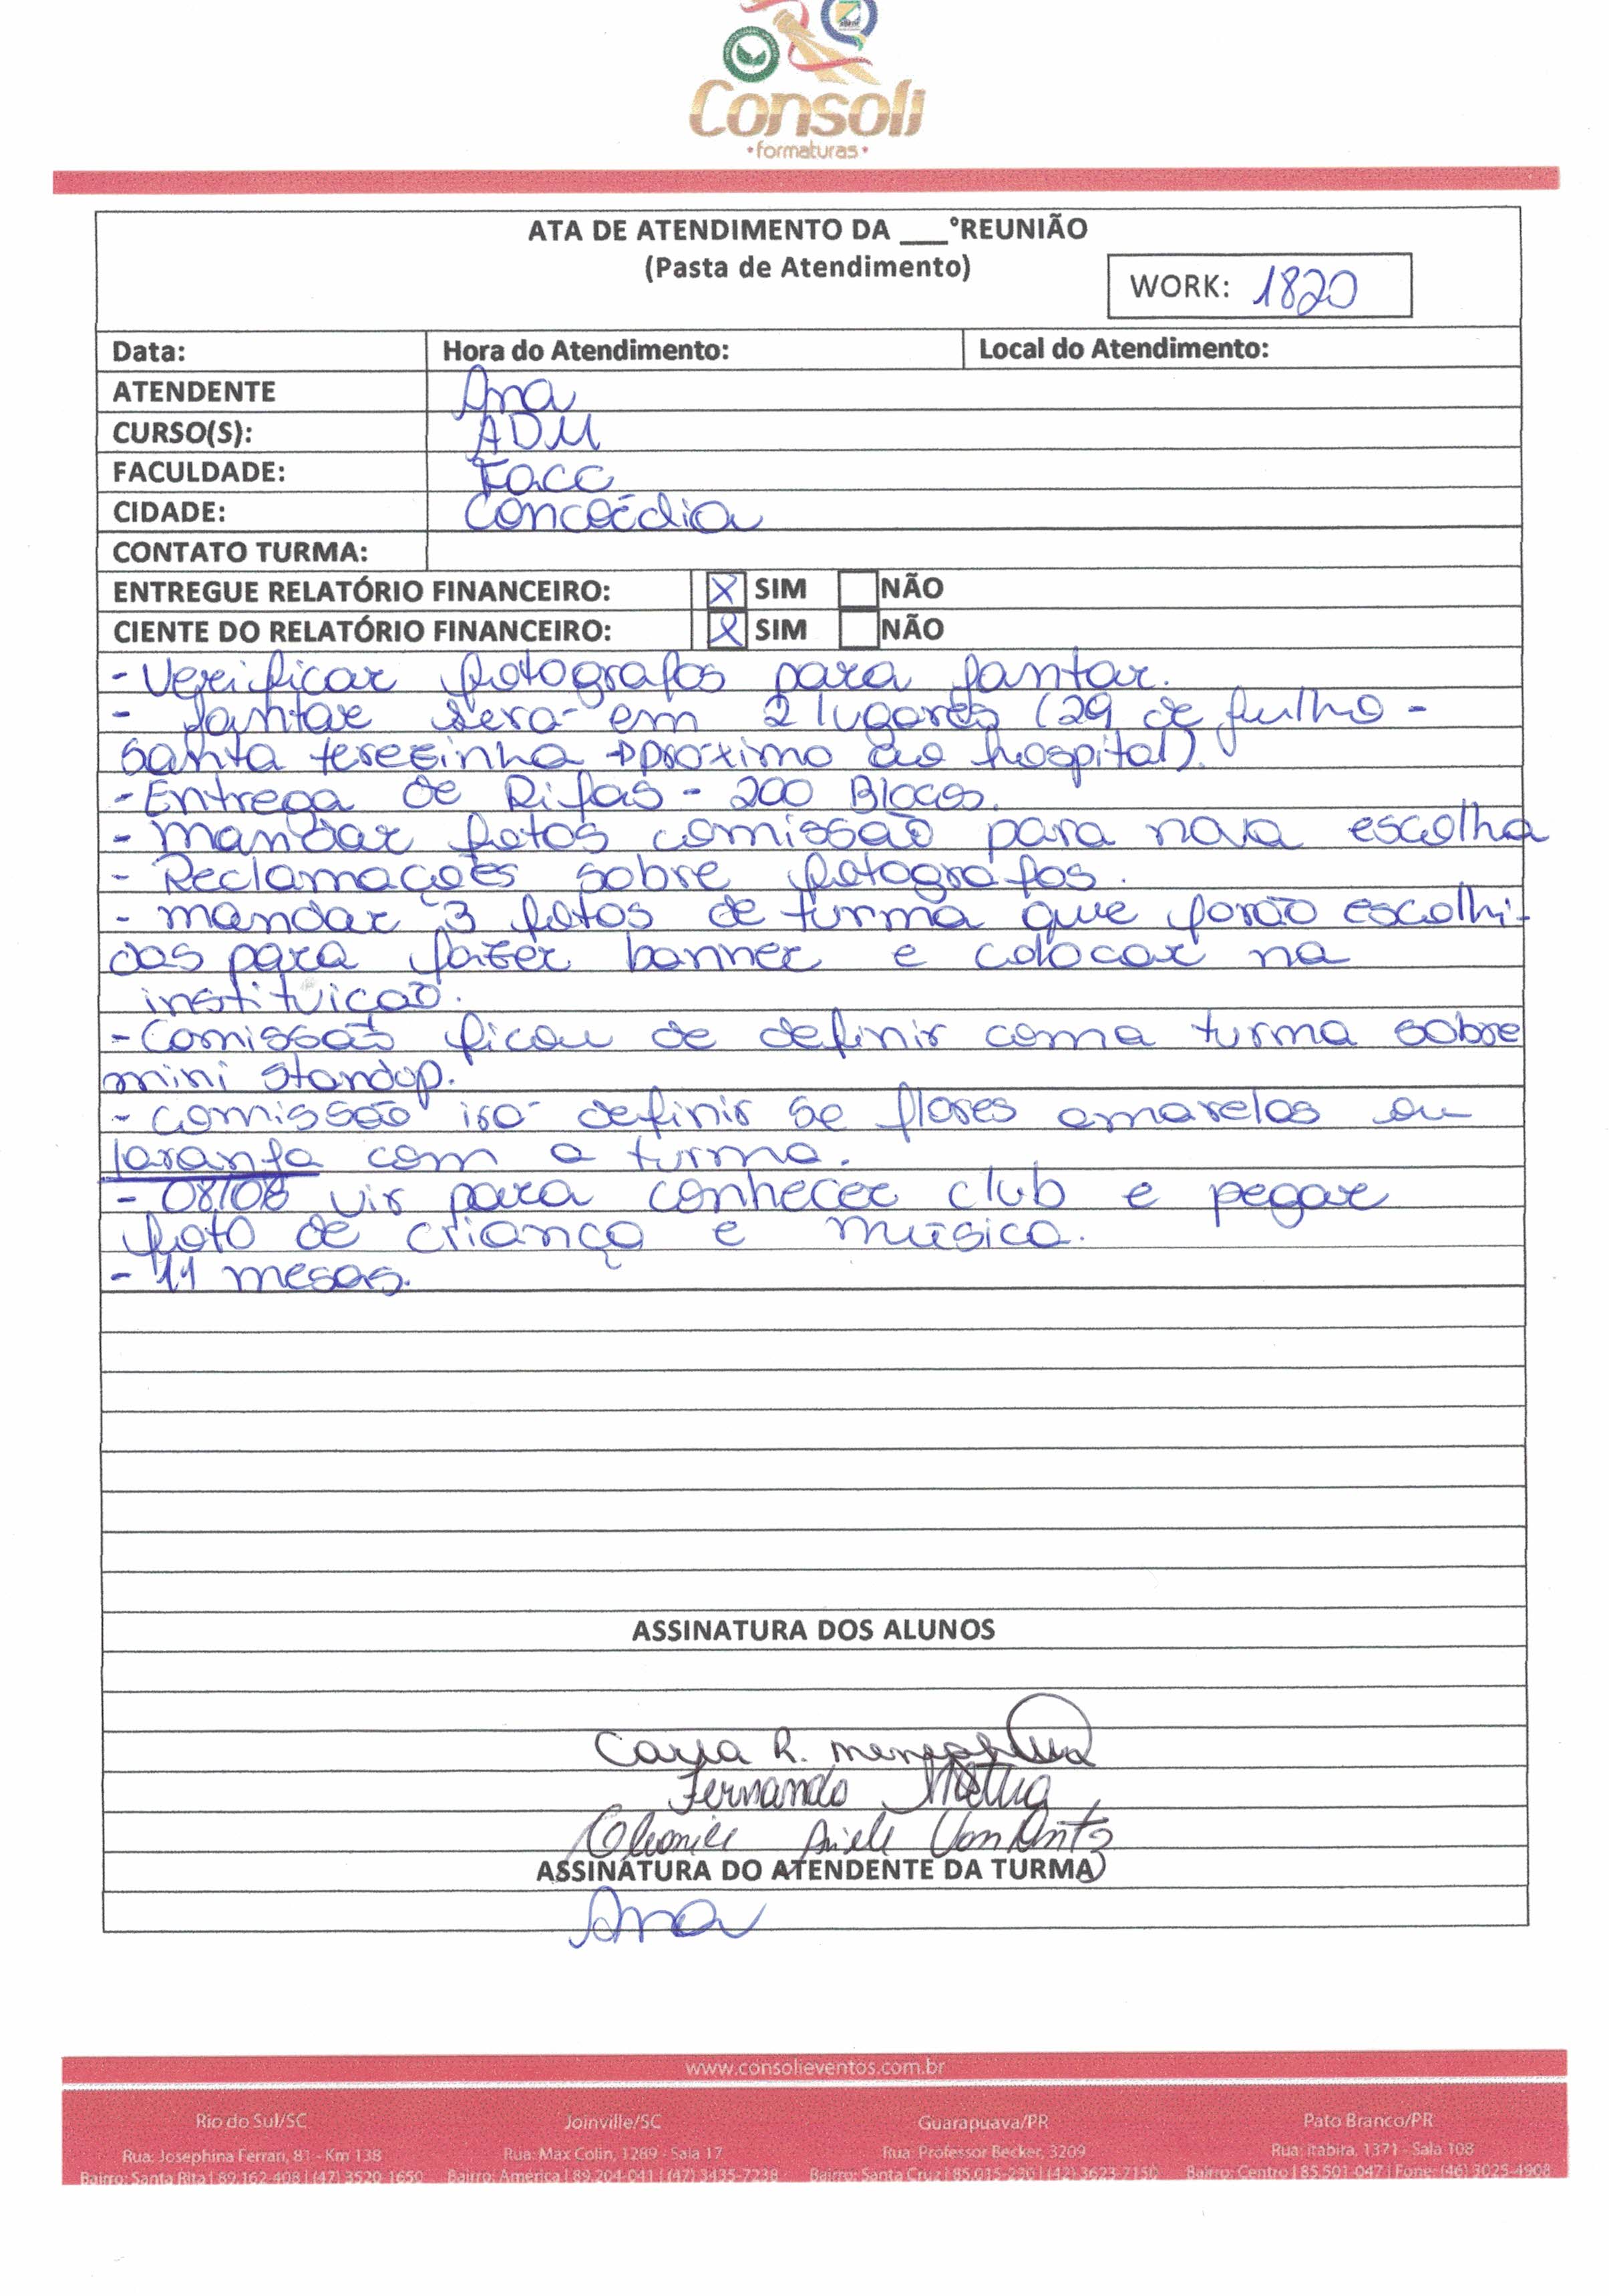 Consoli
•formaturas•
ATA DE ATENDIMENTO DA ___°REUNIÃO
(Pasta de Atendimento)
WORK: 1820
Data: Hora do Atendimento: Local do Atendimento:
ATENDENTE Ana
CURSO(S): ADM
FACULDADE: Facc
CIDADE: Concórdia
CONTATO TURMA:
ENTREGUE RELATÓRIO FINANCEIRO: X SIM NÃO
CIENTE DO RELATÓRIO FINANCEIRO: X SIM NÃO
- Verificar fotografos para jantar.
- Jantar será em 2 lugares (29 de julho -
Santa terezinha → próximo ao hospital).
- Entrega de Rifas - 200 Blocos.
- mandar fotos comissão para nova escolha
- Reclamações sobre fotografos.
- mandar 3 fotos de turma que forão escolhi-
das para fazer banner e colocar na
instituição.
- Comissão ficou de definir com a turma sobre
mini standup.
- comissão irá definir se flores amarelas ou
laranja com a turma.
- 08/08 vir para conhecer club e pegar
foto de criança e música.
- 11 mesas.
ASSINATURA DOS ALUNOS
Carla R.
Fernando
ASSINATURA DO ATENDENTE DA TURMA
Ana
www.consolieventos.com.br
Rio do Sul/SC Joinville/SC Guarapuava/PR Pato Branco/PR
Rua: Josephina Ferrari, 81 - Km 138 Rua: Max Colin, 1289 - Sala 17 Rua: Professor Becker, 3209 Rua: Itabira, 1371 - Sala 108
Bairro: Santa Rita | 89.162-408 | (47) 3520-1650 Bairro: América | 89.204-041 | (47) 3435-7238 Bairro: Santa Cruz | 85.015-230 | (42) 3623-7150 Bairro: Centro | 85.501-047 | Fone: (46) 3025-4908